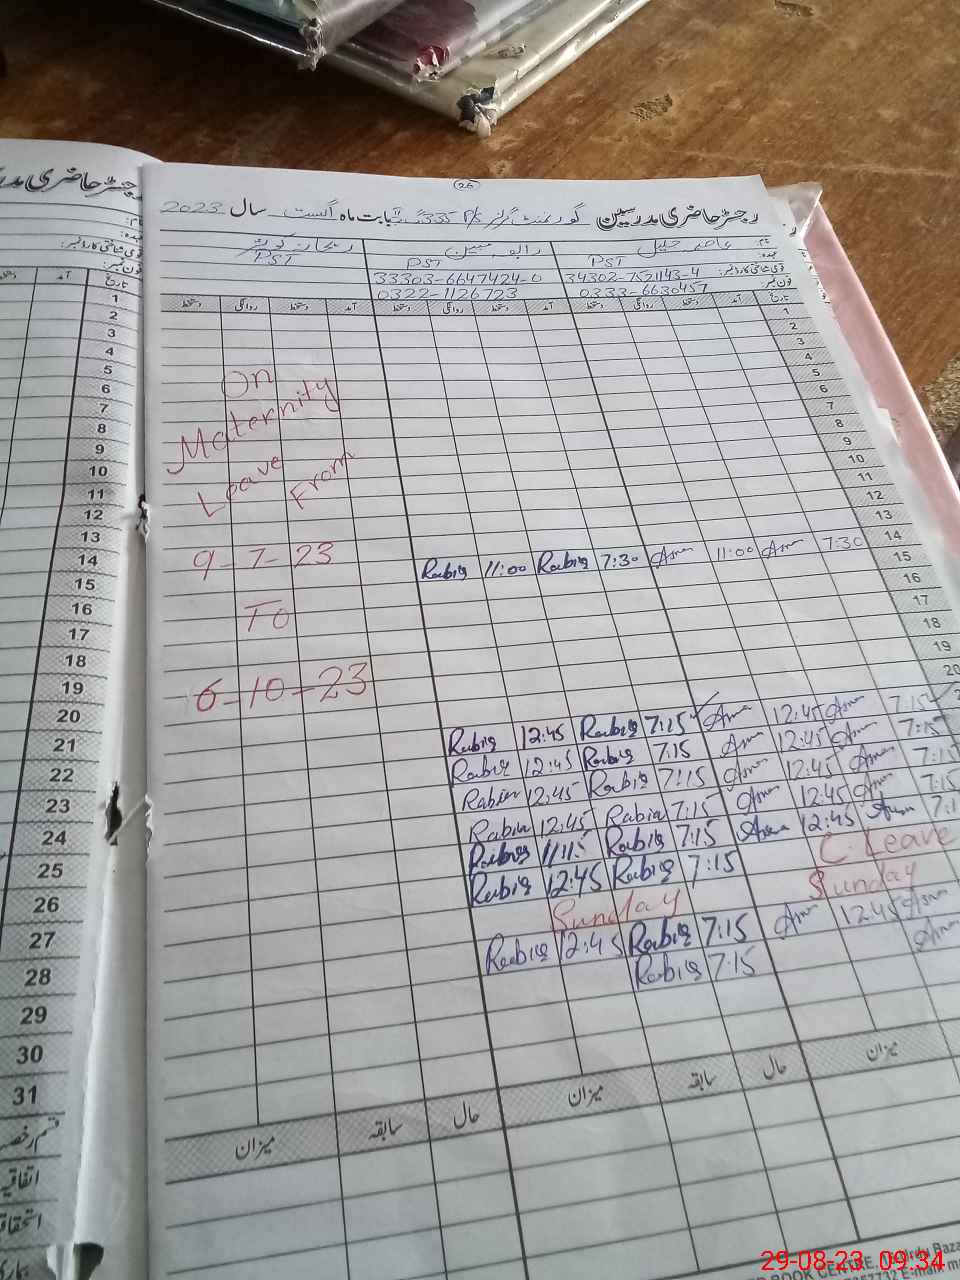 26
رجسٹر حاضری مدرسین گورنمنٹ گرلز P/S بابت ماہ اگست سال 2023
نام:
عہدہ: PST PST PST
قومی شناختی کارڈ نمبر: 34302-7521143-4 33303-6647424-0
فون نمبر: 0333-6630457 0322-1126723
تاریخ آمد دستخط روانگی دستخط آمد دستخط روانگی دستخط آمد دستخط روانگی دستخط
1
2
3
4
5
6
7
8
9
10
11
12
13
14
15
16
17
18
19
20
On
Maternity
Leave From
9-7-23
To
6-10-23
Rabia 11:00 Rabia 7:30 Asma 11:00 Asma 7:30
Rabia 12:45 Rabia 7:15 Asma 12:45 Asma 7:15
Rabia 12:45 Rabia 7:15 Asma 12:45 Asma 7:15
Rabia 12:45 Rabia 7:15 Asma 12:45 Asma 7:15
Rabia 12:45 Rabia 7:15 Asma 12:45 Asma 7:15
Rabia 11:15 Rabia 7:15 Asma 12:45 Asma
Rabia 12:45 Rabia 7:15 C. Leave
Sunday Sunday
Rabia 12:45 Rabia 7:15 Asma 12:45 Asma
Rabia 7:15 Asma
میزان حال سابقہ میزان حال سابقہ میزان
رجسٹر حاضری
تاریخ
آمد
1
2
3
4
5
6
7
8
9
10
11
12
13
14
15
16
17
18
19
20
21
22
23
24
25
26
27
28
29
30
31
BOOK CENTRE
29-08-23 09:34